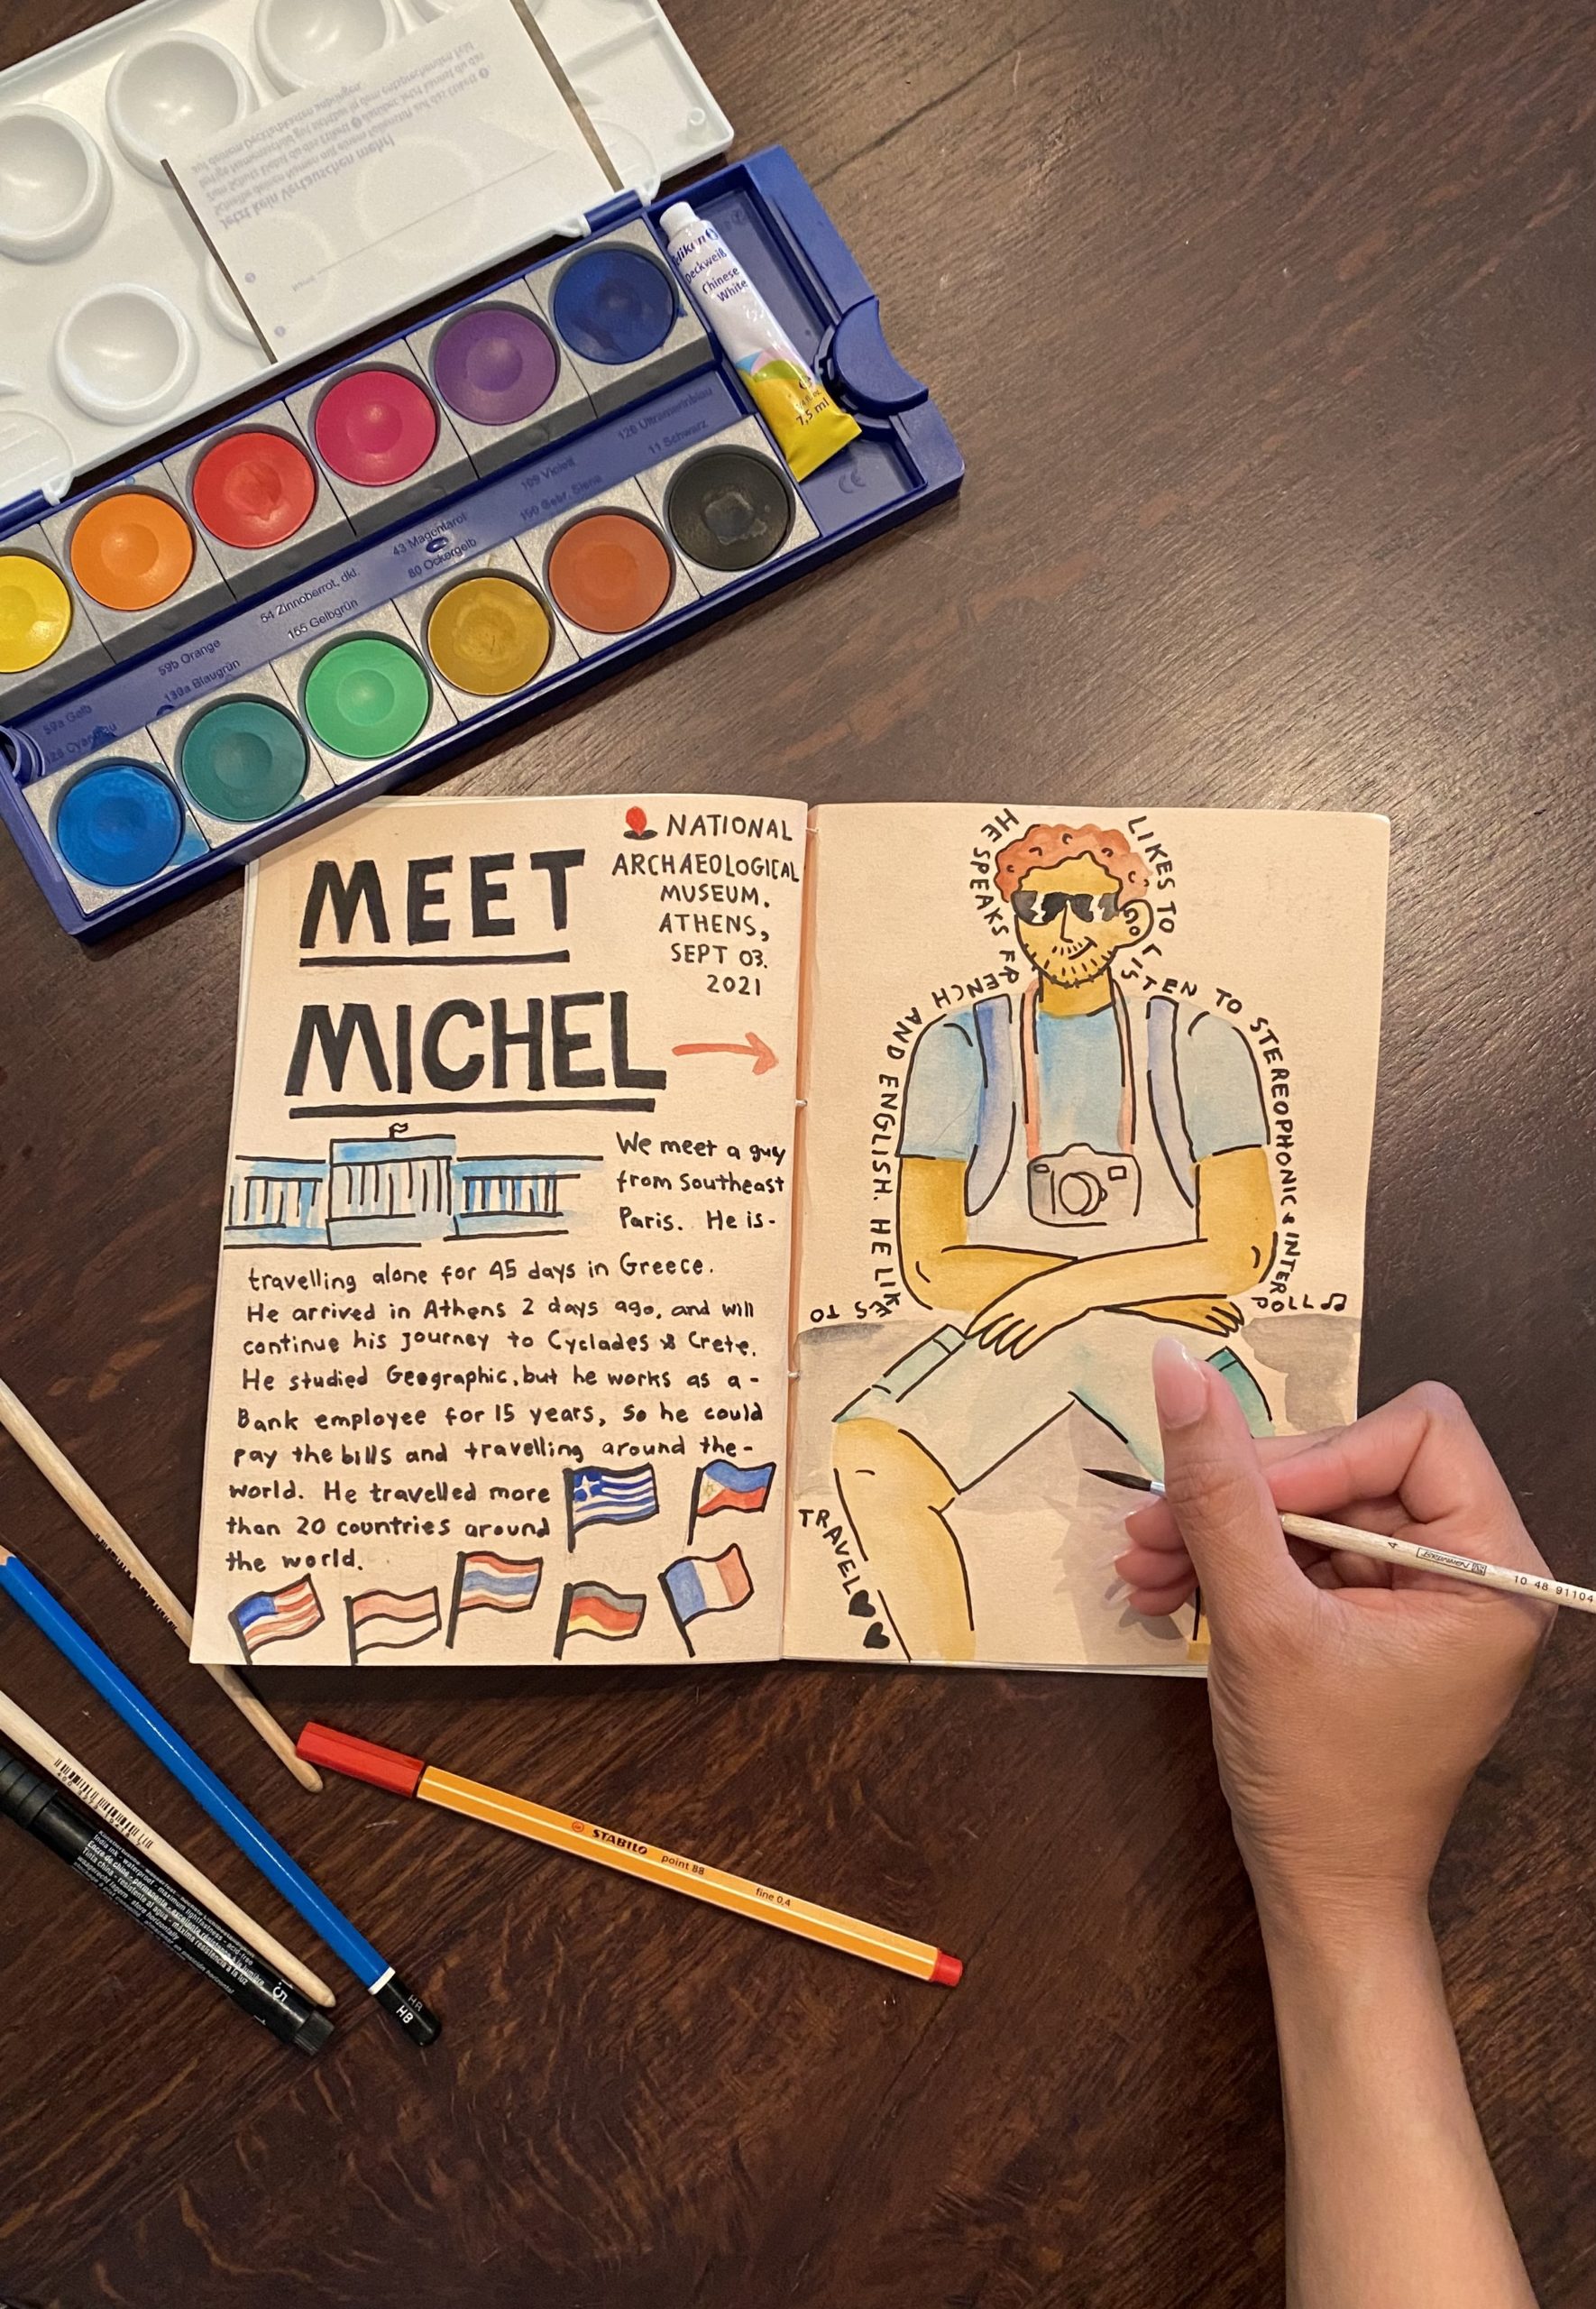 Jetzt kein Vertauschen mehr!
Pelikan
Deckweiß
Chinese
White
7,5 ml
CE
126 Ultramarinblau
11 Schwarz
109 Violett
190 Gebr. Siena
43 Magentarot
80 Ockergelb
54 Zinnoberrot, dkl.
165 Gelbgrün
59b Orange
139a Blaugrün
59a Gelb
NATIONAL
ARCHAEOLOGICAL
MUSEUM.
ATHENS,
SEPT 03.
2021
MEET
MICHEL
We meet a guy
from Southeast
Paris. He is-
travelling alone for 45 days in Greece.
He arrived in Athens 2 days ago, and will
continue his journey to Cyclades & Crete.
He studied Geographic, but he works as a-
Bank employee for 15 years, so he could
pay the bills and travelling around the-
world. He travelled more
than 20 countries around
the world.
HE SPEAKS FRENCH AND ENGLISH. HE LIKES TO
TRAVEL
LIKES TO LISTEN TO STEREOPHONIC & INTERPOLL
10 48 91104
STABILO point 88 fine 0.4
HB
HB
1.5